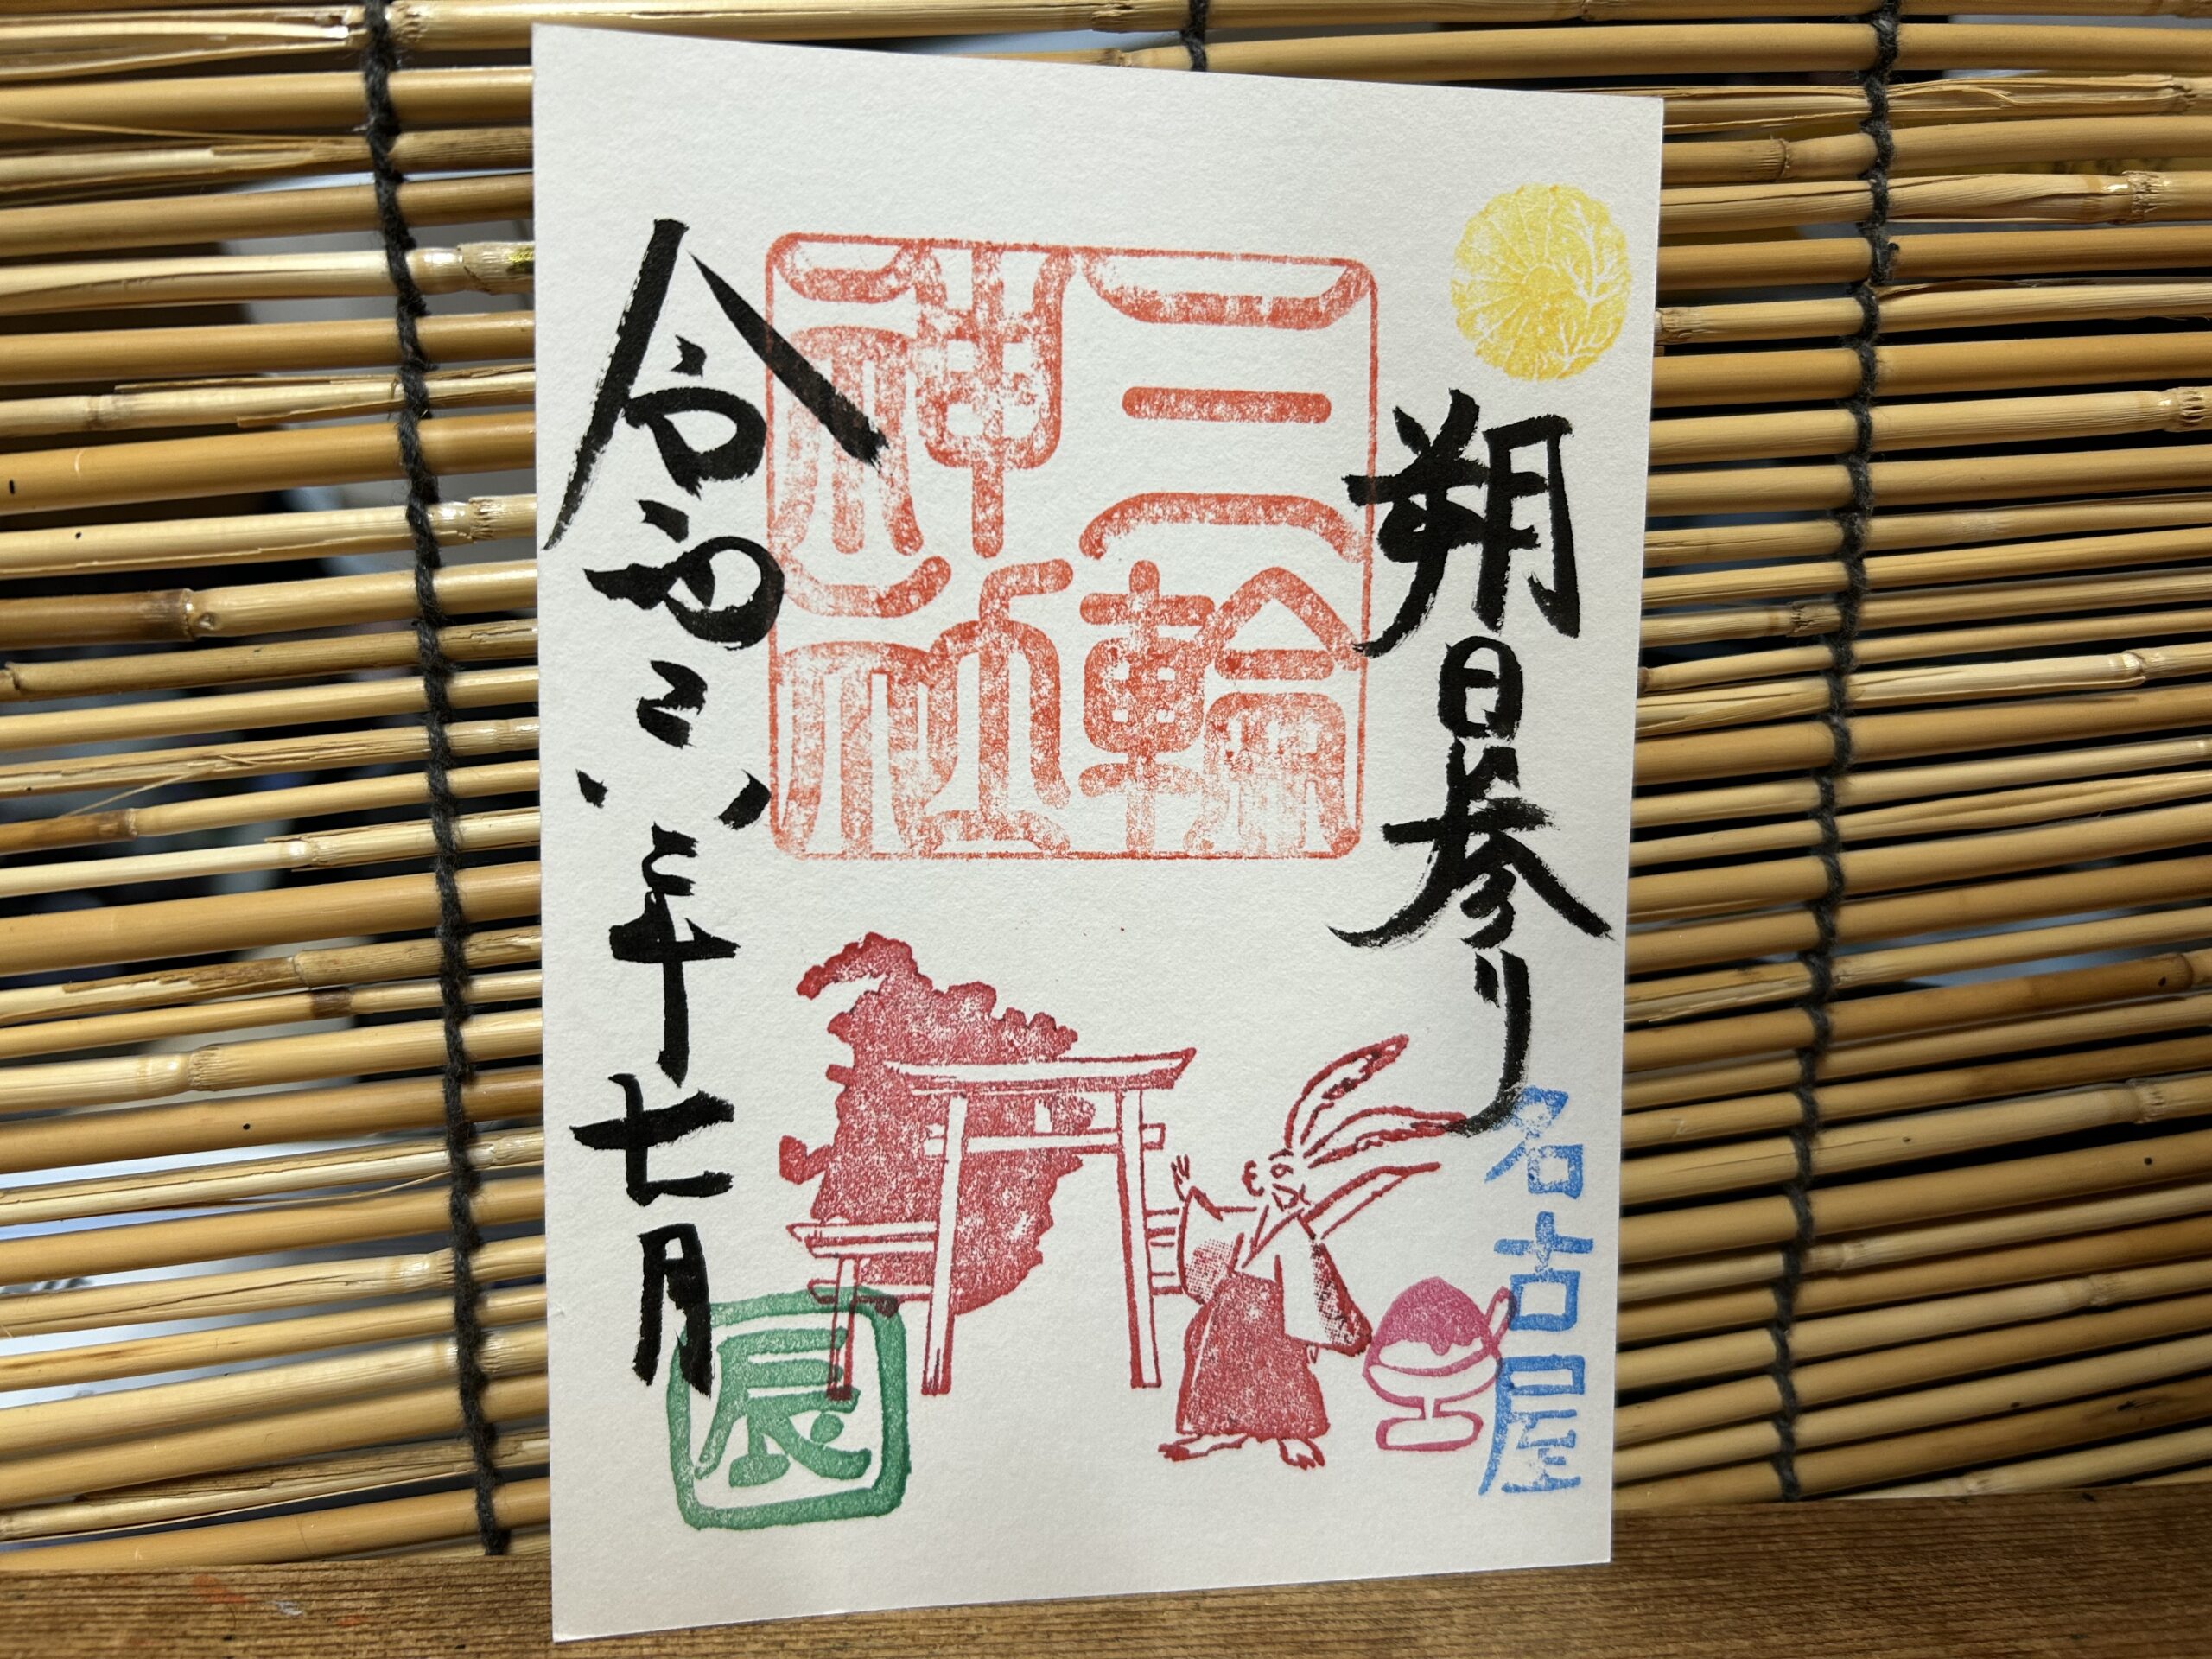 朔日参り
名古屋
三輪
神社
令和六年七月
辰